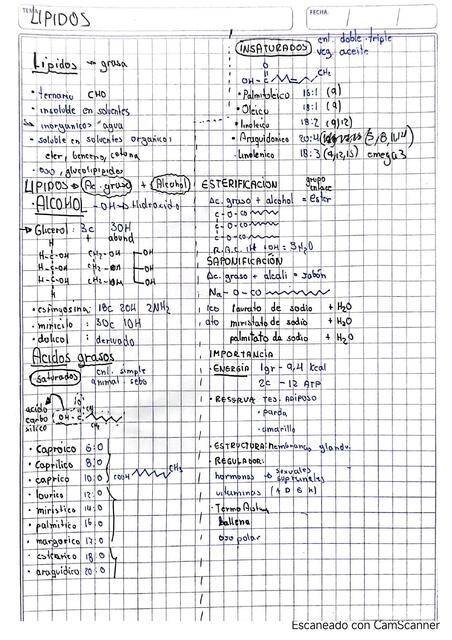 TEMA:
LIPIDOS
FECHA
Lipidos → grasa
• ternario CHO
• insoluble en solventes
inorganicos "agua"
• soluble en solventes organicos
eter, benceno, cetona
LIPIDOS → Ac. graso + Alcohol
• ALCOHOL - OH → Hidroxido
→ Glicerol: 3c 3OH
+ abund
H
H-C-OH CH2-OH OH
H-C-OH CH-OH OH
H-C-OH CH2-OH OH
H
• esfingosina: 18c 2OH 2NH2
• miricilo : 30c 1OH
• dolicol : derivado
Acidos grasos
saturados enl. simple
animal sebo
acido
carbo
silico
OH-C
• Caproico 6:0
• Caprilico 8:0
• caprico 10:0 COOH CH3
• laurico 12:0
• miristico 14:0
• palmitico 16:0
• margarico 17:0
• estearico 18:0
• araquidico 20:0
INSATURADOS enl. doble-triple
veg. aceite
O
OH-C CH3
• Palmitoleico 16:1 (9)
• Oleico 18:1 (9)
• linoleico 18:2 (9,12)
• Araquidonico 20:4 (5,8,11,14)
• Linolenico 18:3 (9,12,15) omega 3
ESTERIFICACION grupo
enlace
Ac. graso + alcohol = Ester
C-O-CO
C-O-CO
C-O-CO
SAPONIFICACIÓN
Ac. graso + alcali = jabón
Na-O-CO
ico laurato de sodio + H2O
ato miristato de sodio + H2O
palmitato de sodio + H2O
IMPORTANCIA
• ENERGÍA 1gr - 9,4 Kcal
2c - 12 ATP
• RESERVA TEJ. ADIPOSO
• parda
• amarillo
• ESTRUCTURA: membrana, glandu.
• REGULADOR:
hormonas → sexuales
suprarenales
vitaminas (A D E K)
ballena
oso polar
Escaneado con CamScanner